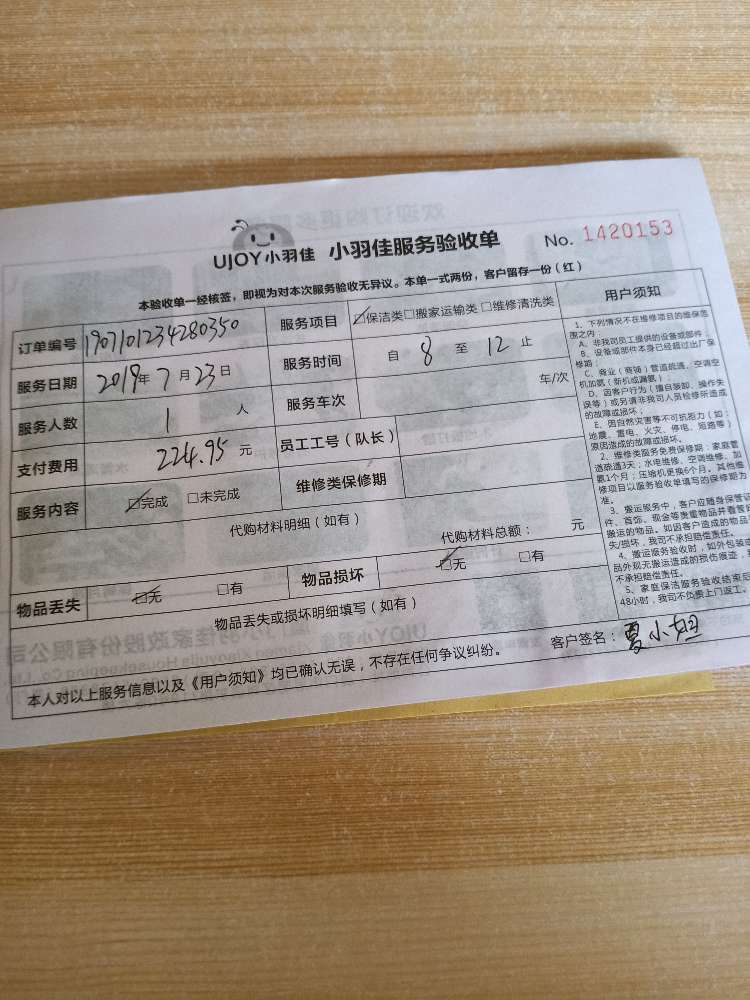 UJOY小羽佳 小羽佳服务验收单 No. 1420153
本验收单一经核签，即视为对本次服务验收无异议。本单一式两份，客户留存一份（红）
订单编号 1907101234280350 服务项目 ☑保洁类□搬家运输类□维修清洗类
服务日期 2019年7月23日 服务时间 自 8 至 12 止
服务人数 1 人 服务车次 年/次
支付费用 224.95 元 员工工号（队长）
服务内容 ☑完成 □未完成 维修类保修期
代购材料明细（如有） 代购材料总额： 元
物品丢失 ☑无 □有 物品损坏 ☑无 □有
物品丢失或损坏明细填写（如有）
本人对以上服务信息以及《用户须知》均已确认无误，不存在任何争议纠纷。 客户签名：夏小姐
用户须知
1、下列情况不在维修项目的维保范
围之内：
A、非我司员工提供的设备或部件；
B、设备或部件本身已经超过出厂保
修期；
C、商业（商铺）管道疏通、空调空
机加氟（新机或漏氟）；
D、因客户行为（擅自装卸、操作失
误等）或另请非我司人员检修所造成
的故障或损坏；
E、因自然灾害等不可抗拒力（如：
地震、雷电、火灾、停电、短路等）
原因造成的故障或损坏。
2、维修类服务免费保修期：家庭管
道疏通3天；水电维修、空调维修、加
氟1个月；压缩机更换6个月。其他维
修项目以服务验收单填写的保修期为
准。
3、搬运服务中，客户应随身保管证
件、首饰、现金等贵重物品并看管好
搬运的物品。如因客户造成的物品丢
失/损坏，我司不承担赔偿责任。
4、搬运服务验收时，如外包装或
品外观无搬运造成的损伤痕迹，
不承担赔偿责任。
5、家庭保洁服务验收结束后
48小时，我司不负责上门返工。